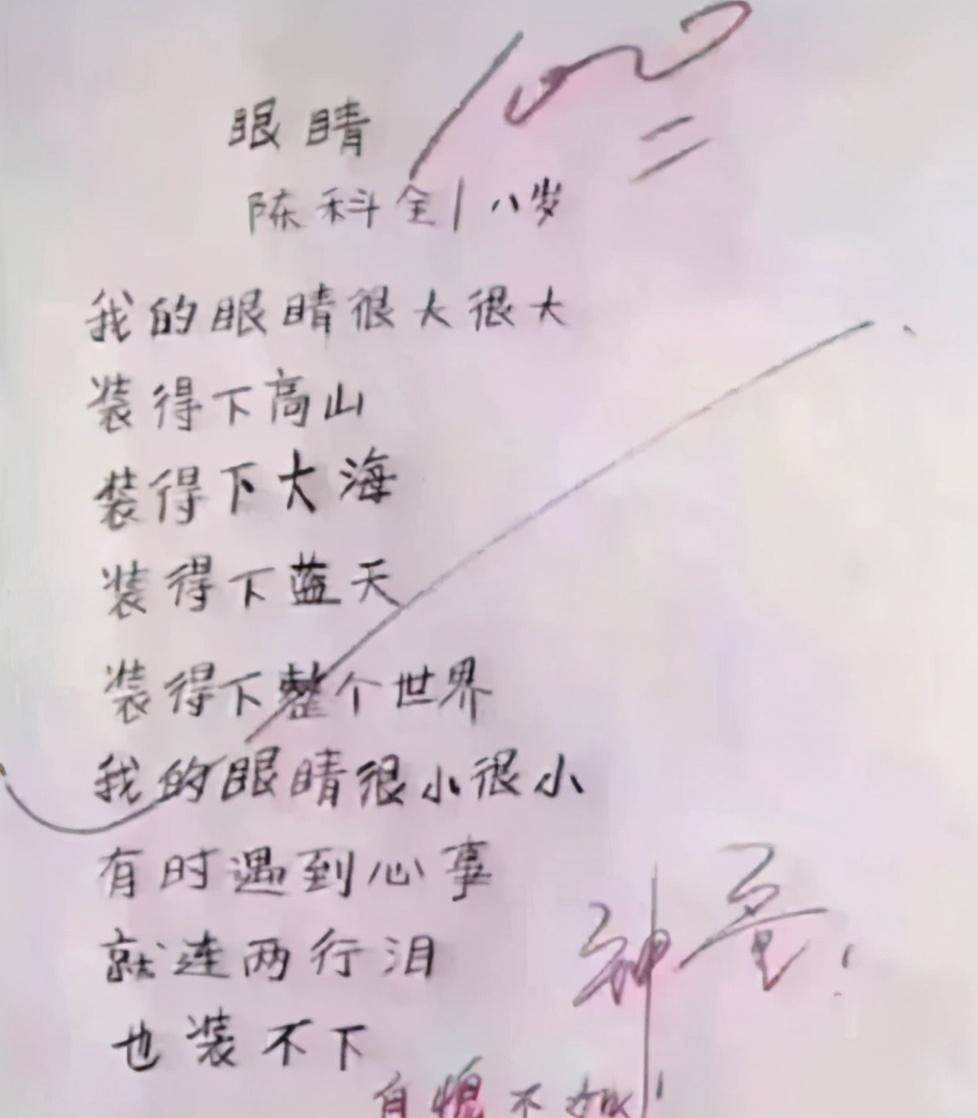 眼睛
100
陈科全 八岁
我的眼睛很大很大
装得下高山
装得下大海
装得下蓝天
装得下整个世界
我的眼睛很小很小
有时遇到心事
就连两行泪
也装不下
神童!
自愧不如!